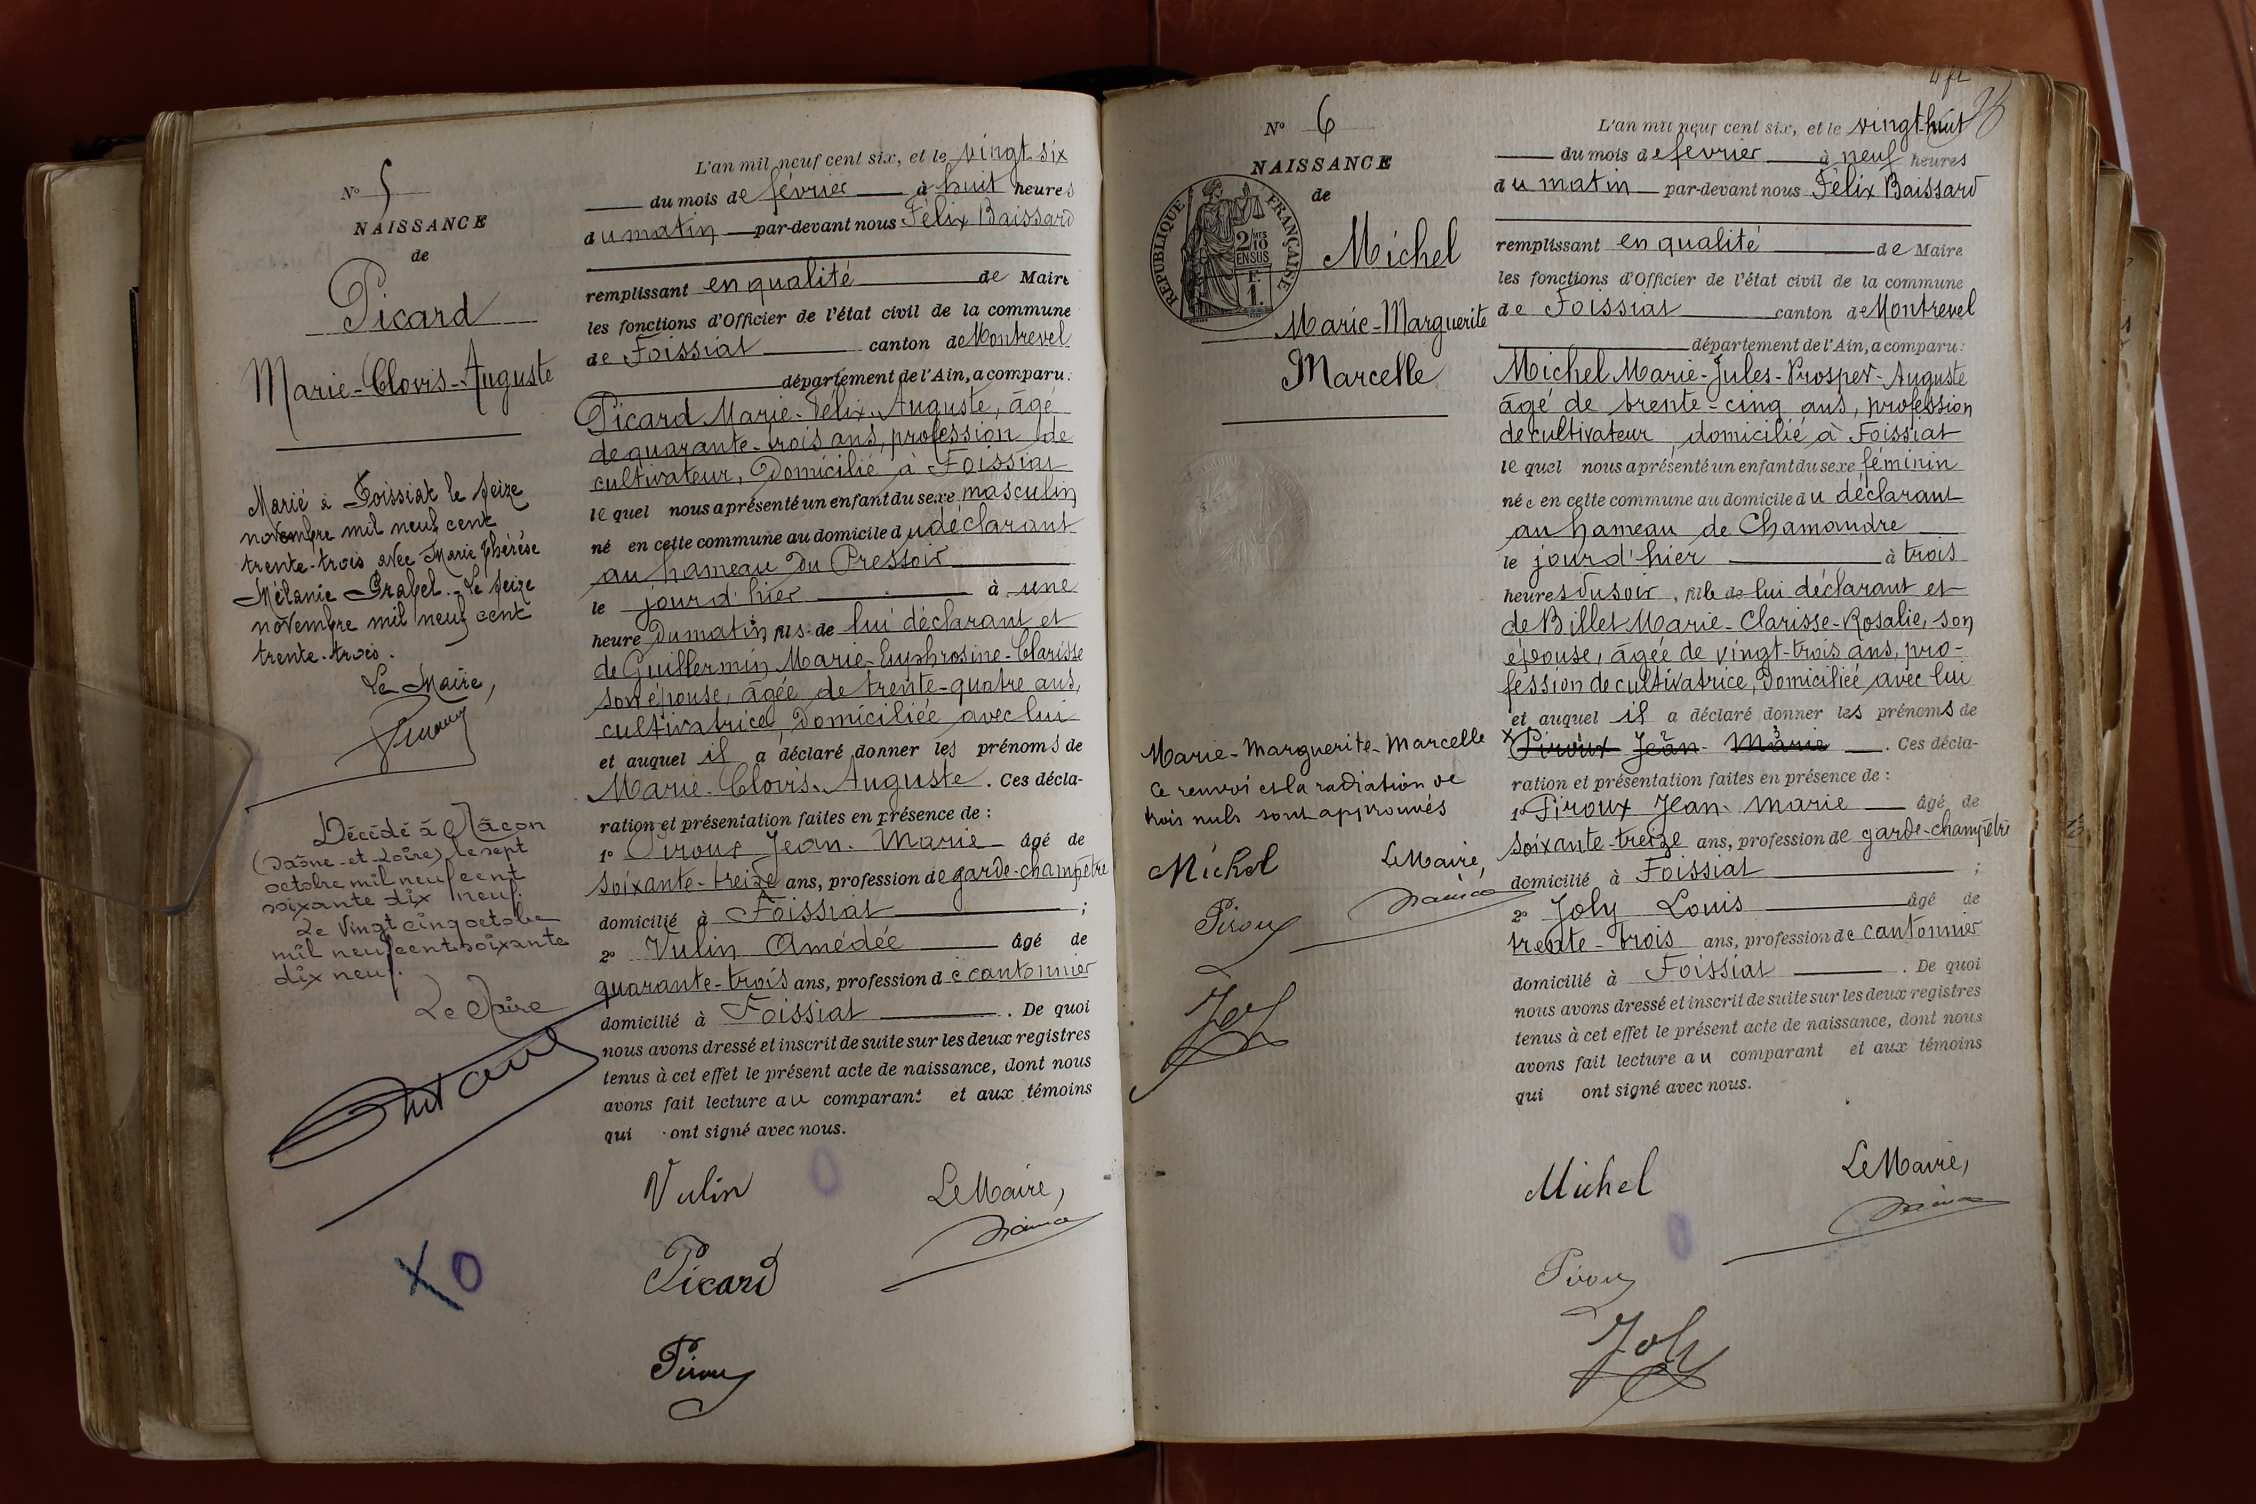 N° 5
NAISSANCE
de
Picard
Marie-Clovis-Auguste
Marié à Foissiat le seize
novembre mil neuf cent
trente-trois avec Marie Thérèse
Mélanie . Le seize
novembre mil neuf cent
trente-trois.
Le Maire,
Décédé à Mâcon
(Saône-et-Loire) le sept
octobre mil neuf cent
soixante dix neuf.
Le Vingt cinq octobre
mil neuf cent soixante
dix neuf.
Le Maire
X 0
L'an mil neuf cent six, et le vingt-six
du mois de février à huit heures
du matin par-devant nous Félix Baissard
remplissant en qualité de Maire
les fonctions d'Officier de l'état civil de la commune
de Foissiat canton de Montrevel
département de l'Ain, a comparu:
Picard Marie-Félix-Auguste, âgé
de quarante-trois ans, profession de
cultivateur, domicilié à Foissiat
lequel nous a présenté un enfant du sexe masculin
né en cette commune au domicile du déclarant
au hameau du Pressoir
le jour d'hier à une
heure du matin, fils de lui déclarant et
de Guillermin Marie-Euphrosine-Clarisse
son épouse, âgée de trente-quatre ans,
cultivatrice, domiciliée avec lui
et auquel il a déclaré donner les prénoms de
Marie-Clovis-Auguste. Ces décla-
ration et présentation faites en présence de :
1° Piroux Jean-Marie âgé de
soixante-treize ans, profession de garde-champêtre
domicilié à Foissiat ;
2° Vulin Amédée âgé de
quarante-trois ans, profession de cantonnier
domicilié à Foissiat . De quoi
nous avons dressé et inscrit de suite sur les deux registres
tenus à cet effet le présent acte de naissance, dont nous
avons fait lecture au comparant et aux témoins
qui ont signé avec nous.
Vulin 0 Le Maire,
Picard
Piroux
N° 6
NAISSANCE
de
RÉPUBLIQUE FRANÇAISE
2/10 EN SUS
F. 1.
Michel
Marie-Marguerite
Marcelle
Marie-Marguerite-Marcelle
Ce renvoi et la radiation de
trois nuls sont approuvés
Michel Le Maire,
Piroux
Joly
L'an mil neuf cent six, et le vingt-huit
du mois de février à neuf heures
du matin par-devant nous Félix Baissard
remplissant en qualité de Maire
les fonctions d'Officier de l'état civil de la commune
de Foissiat canton de Montrevel
département de l'Ain, a comparu:
Michel Marie-Jules-Prosper-Auguste
âgé de trente-cinq ans, profession
de cultivateur domicilié à Foissiat
lequel nous a présenté un enfant du sexe féminin
née en cette commune au domicile du déclarant
au hameau de Chamandre
le jour d'hier à trois
heures du soir, fille de lui déclarant et
de Billet Marie-Clarisse-Rosalie, son
épouse, âgée de vingt-trois ans, pro-
fession de cultivatrice, domiciliée avec lui
et auquel il a déclaré donner les prénoms de
Piroux Jean-Marie . Ces décla-
ration et présentation faites en présence de :
1° Piroux Jean-Marie âgé de
soixante-treize ans, profession de garde-champêtre
domicilié à Foissiat ;
2° Joly Louis âgé de
trente-trois ans, profession de cantonnier
domicilié à Foissiat . De quoi
nous avons dressé et inscrit de suite sur les deux registres
tenus à cet effet le présent acte de naissance, dont nous
avons fait lecture au comparant et aux témoins
qui ont signé avec nous.
Michel Le Maire,
0
Piroux
Joly